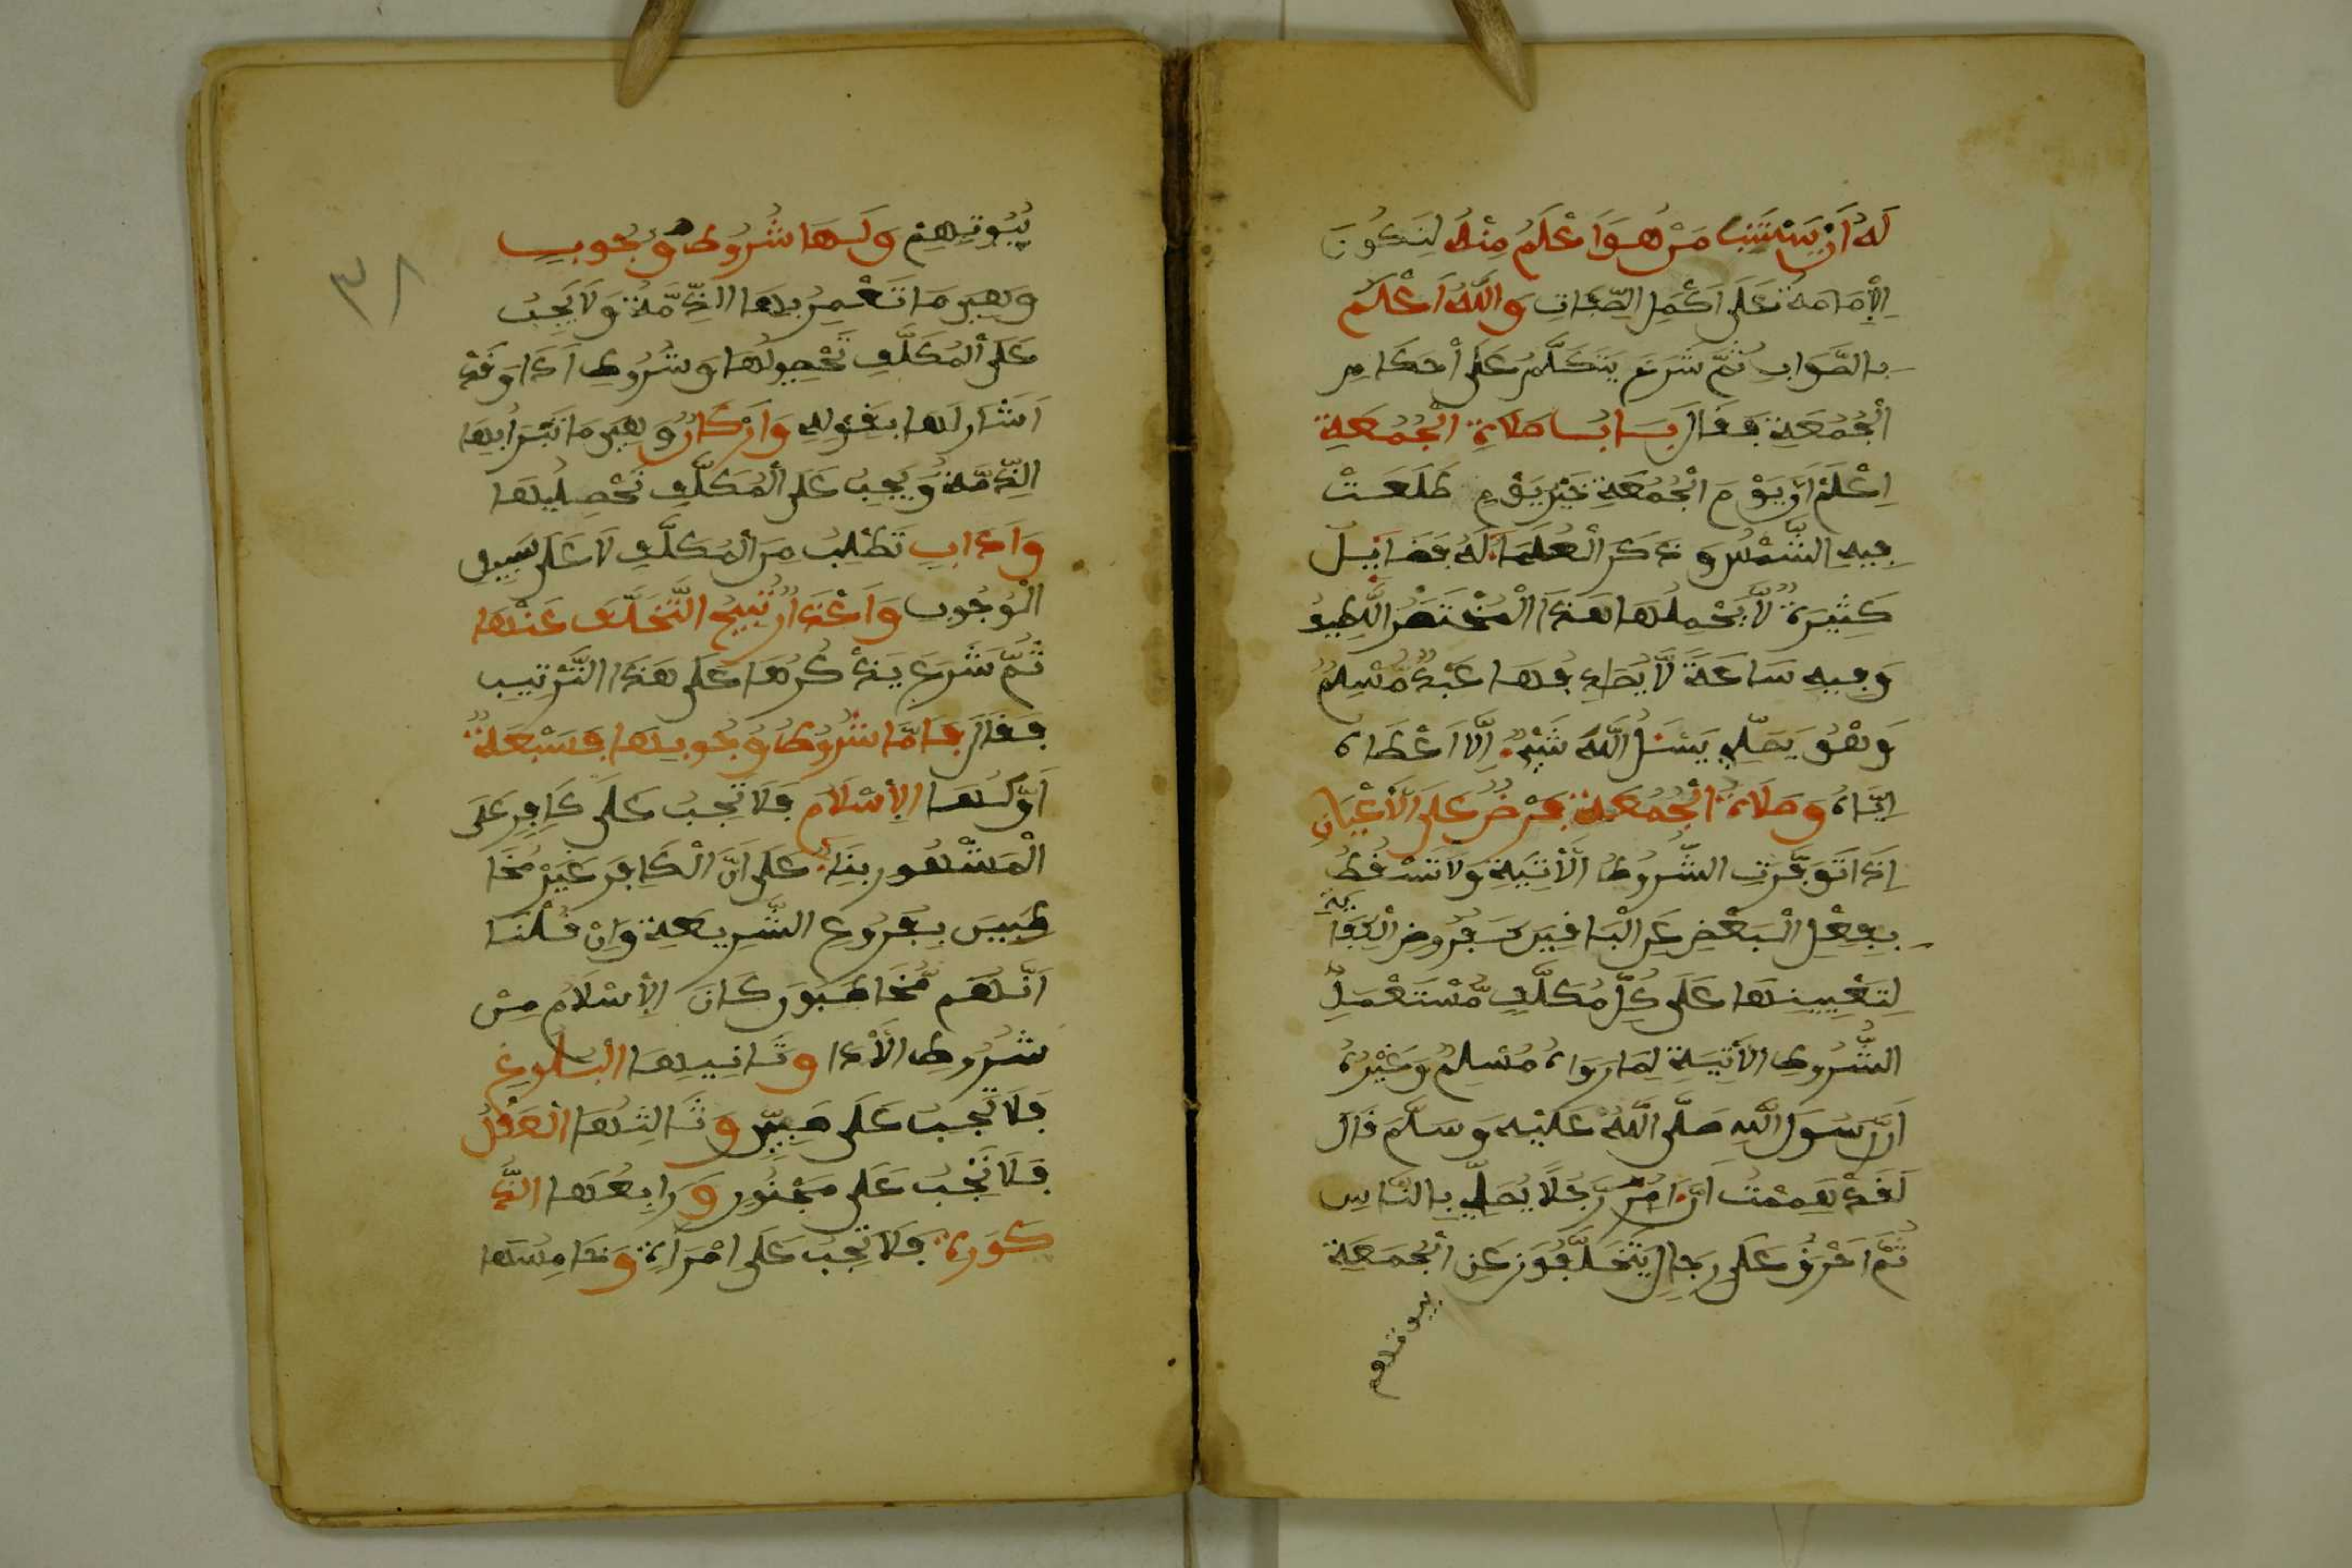 لَهُ أَنْ يَسْتَنِيبَ مَنْ هُوَ أَعْلَمُ مِنْهُ لِتَكُونَ
الْإِمَامَةُ عَلَى أَكْمَلِ الصِّفَاتِ وَاللَّهُ أَعْلَمُ
بِالصَّوَابِ ثُمَّ شَرَعَ يَتَكَلَّمُ عَلَى أَحْكَامِ
الْجُمُعَةِ فَقَالَ بَابُ صَلَاةِ الْجُمُعَةِ
اِعْلَمْ أَنَّ يَوْمَ الْجُمُعَةِ خَيْرُ يَوْمٍ طَلَعَتْ
فِيهِ الشَّمْسُ وَذَكَرَ الْعُلَمَاءُ لَهُ فَضَائِلَ
كَثِيرَةً لَا يَحْمِلُهَا هَذَا الْمُخْتَصَرُ اللَّطِيفُ
وَفِيهِ سَاعَةٌ لَا يُصَادِفُهَا عَبْدٌ مُسْلِمٌ
وَهُوَ يُصَلِّي يَسْئَلُ اللَّهَ شَيْئًا إِلَّا أَعْطَاهُ
إِيَّاهُ وَصَلَاةُ الْجُمُعَةِ فَرْضٌ عَلَى الْأَعْيَانِ
إِذَا تَوَفَّرَتِ الشُّرُوطُ الْآتِيَةُ وَلَا تَسْقُطُ
بِفِعْلِ الْبَعْضِ عَنِ الْبَاقِينَ كَفُرُوضِ الْكِفَايَةِ
لِتَعْيِينِهَا عَلَى كُلِّ مُكَلَّفٍ مُسْتَعْمِلٍ
الشُّرُوطِ الْآتِيَةِ لِمَا رَوَاهُ مُسْلِمٌ وَغَيْرُهُ
أَنَّ رَسُولَ اللَّهِ صَلَّى اللَّهُ عَلَيْهِ وَسَلَّمَ قَالَ
لَقَدْ هَمَمْتُ أَنْ آمُرَ رَجُلًا يُصَلِّي بِالنَّاسِ
ثُمَّ أُحَرِّقُ عَلَى رِجَالٍ يَتَخَلَّفُونَ عَنِ الْجُمُعَةِ
بيوتهم
بُيُوتَهُمْ وَلَهَا شُرُوطُ وُجُوبٍ
وَهِيَ مَا تَعْمُرُ بِهَا الذِّمَّةُ وَلَا يَجِبُ
عَلَى الْمُكَلَّفِ تَحْصِيلُهَا وَشُرُوطُ أَدَا وَقَدْ
أَشَارَ لَهَا بِقَوْلِهِ وَأَرْكَانٌ وَهِيَ مَا تَبْرَأُ بِهَا
الذِّمَّةُ وَيَجِبُ عَلَى الْمُكَلَّفِ تَحْصِيلُهَا
وَآدَابٌ تُطْلَبُ مِنَ الْمُكَلَّفِ لَا عَلَى سَبِيلِ
الْوُجُوبِ وَأَعْذَارٌ تُبِيحُ التَّخَلُّفَ عَنْهَا
ثُمَّ شَرَعَ يَذْكُرُهَا عَلَى هَذَا التَّرْتِيبِ
فَقَالَ فَأَمَّا شُرُوطُ وُجُوبِهَا فَسَبْعَةٌ
أَوَّلُهَا الْإِسْلَامُ فَلَا تَجِبُ عَلَى كَافِرٍ عَلَى
الْمَشْهُورِ بِنَاءً عَلَى أَنَّ الْكَافِرَ غَيْرُ مُخَا
طَبِينَ بِفُرُوعِ الشَّرِيعَةِ وَإِنْ قُلْنَا
أَنَّهُمْ مُخَاطَبُونَ كَانَ الْإِسْلَامُ مِنْ
شُرُوطِ الْأَدَا وَثَانِيهَا الْبُلُوغُ
فَلَا تَجِبُ عَلَى صَبِيٍّ وَثَالِثُهَا الْعَقْلُ
فَلَا تَجِبُ عَلَى مَجْنُونٍ وَرَابِعُهَا الذُّ
كُورَةُ فَلَا تَجِبُ عَلَى امْرَأَةٍ وَخَامِسُهَا
٣٨